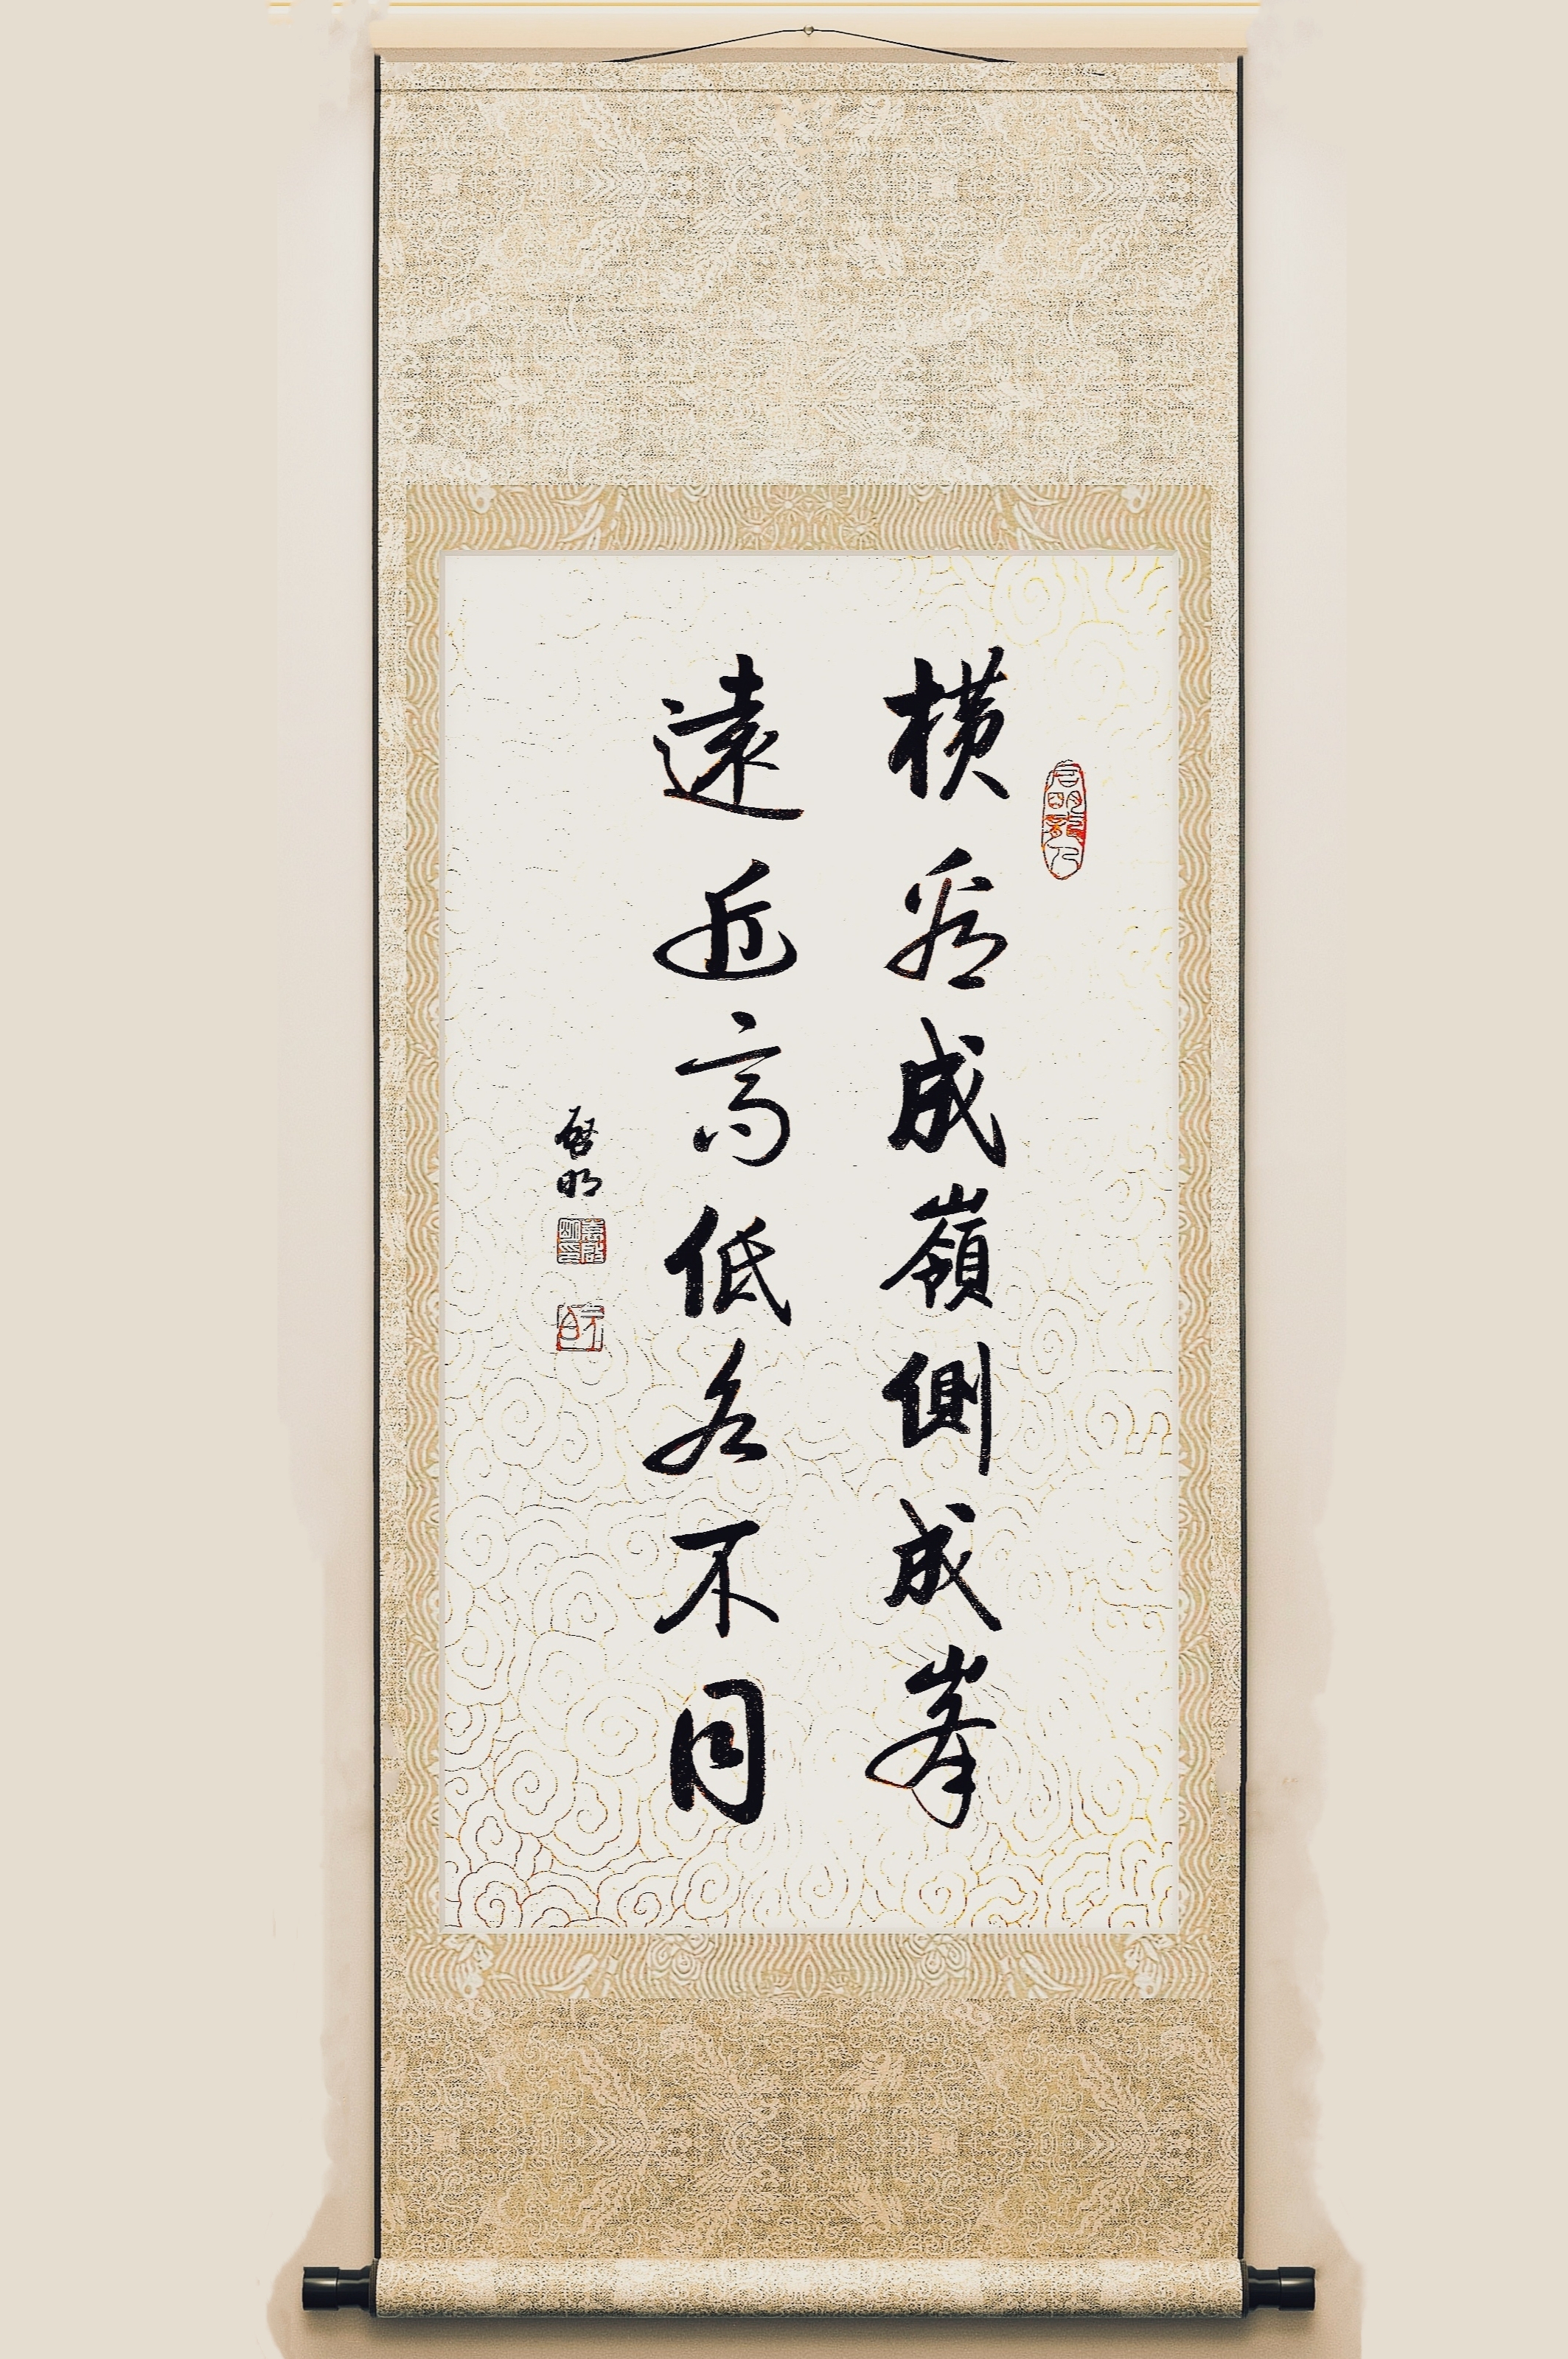 横看成嶺側成峯
遠近高低各不同
啓明